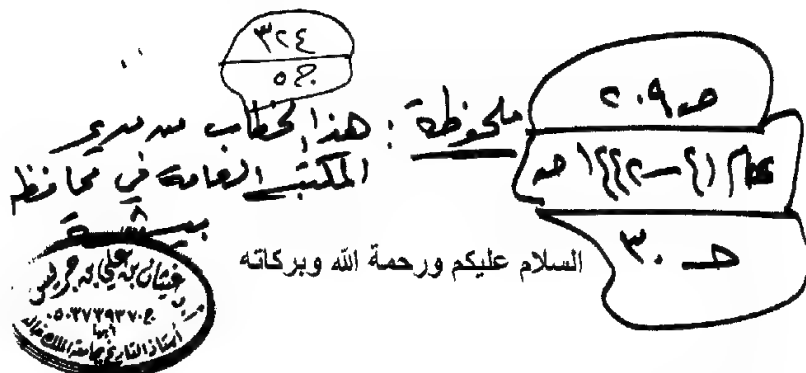 ٣٢٤
ج٥
ص ٢٠٩
٤١ــ١٤٤٢هـ
جـ ٣٠
ملحوظة : هذا الخطاب من مدير
المكتبة العامة في محافظة
بيشة
السلام عليكم ورحمة الله وبركاته
غيثان بن علي بن جريس
أبها
أستاذ التاريخ جامعة الملك خالد